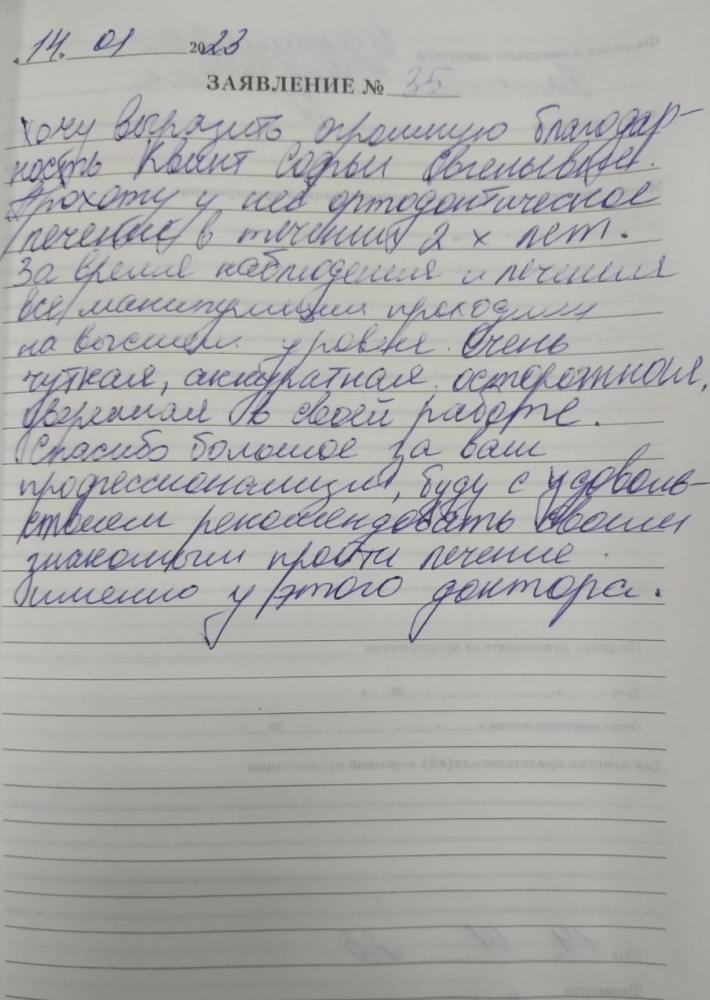 14. 01 2023
ЗАЯВЛЕНИЕ № 35
Хочу выразить огромную благодар-
ность Квинт Софьи Евгеньевне.
Прохожу у неё ортодонтическое
лечение в течении 2-х лет.
За время наблюдения и лечения
все манипуляции проходили
на высшем уровне. Очень
чуткая, аккуратная, осторожная,
уверенная в своей работе.
Спасибо большое за ваш
профессионализм, буду с удоволь-
ствием рекомендовать своим
знакомым пройти лечение
именно у этого доктора.
Подпись руководителя предприятия